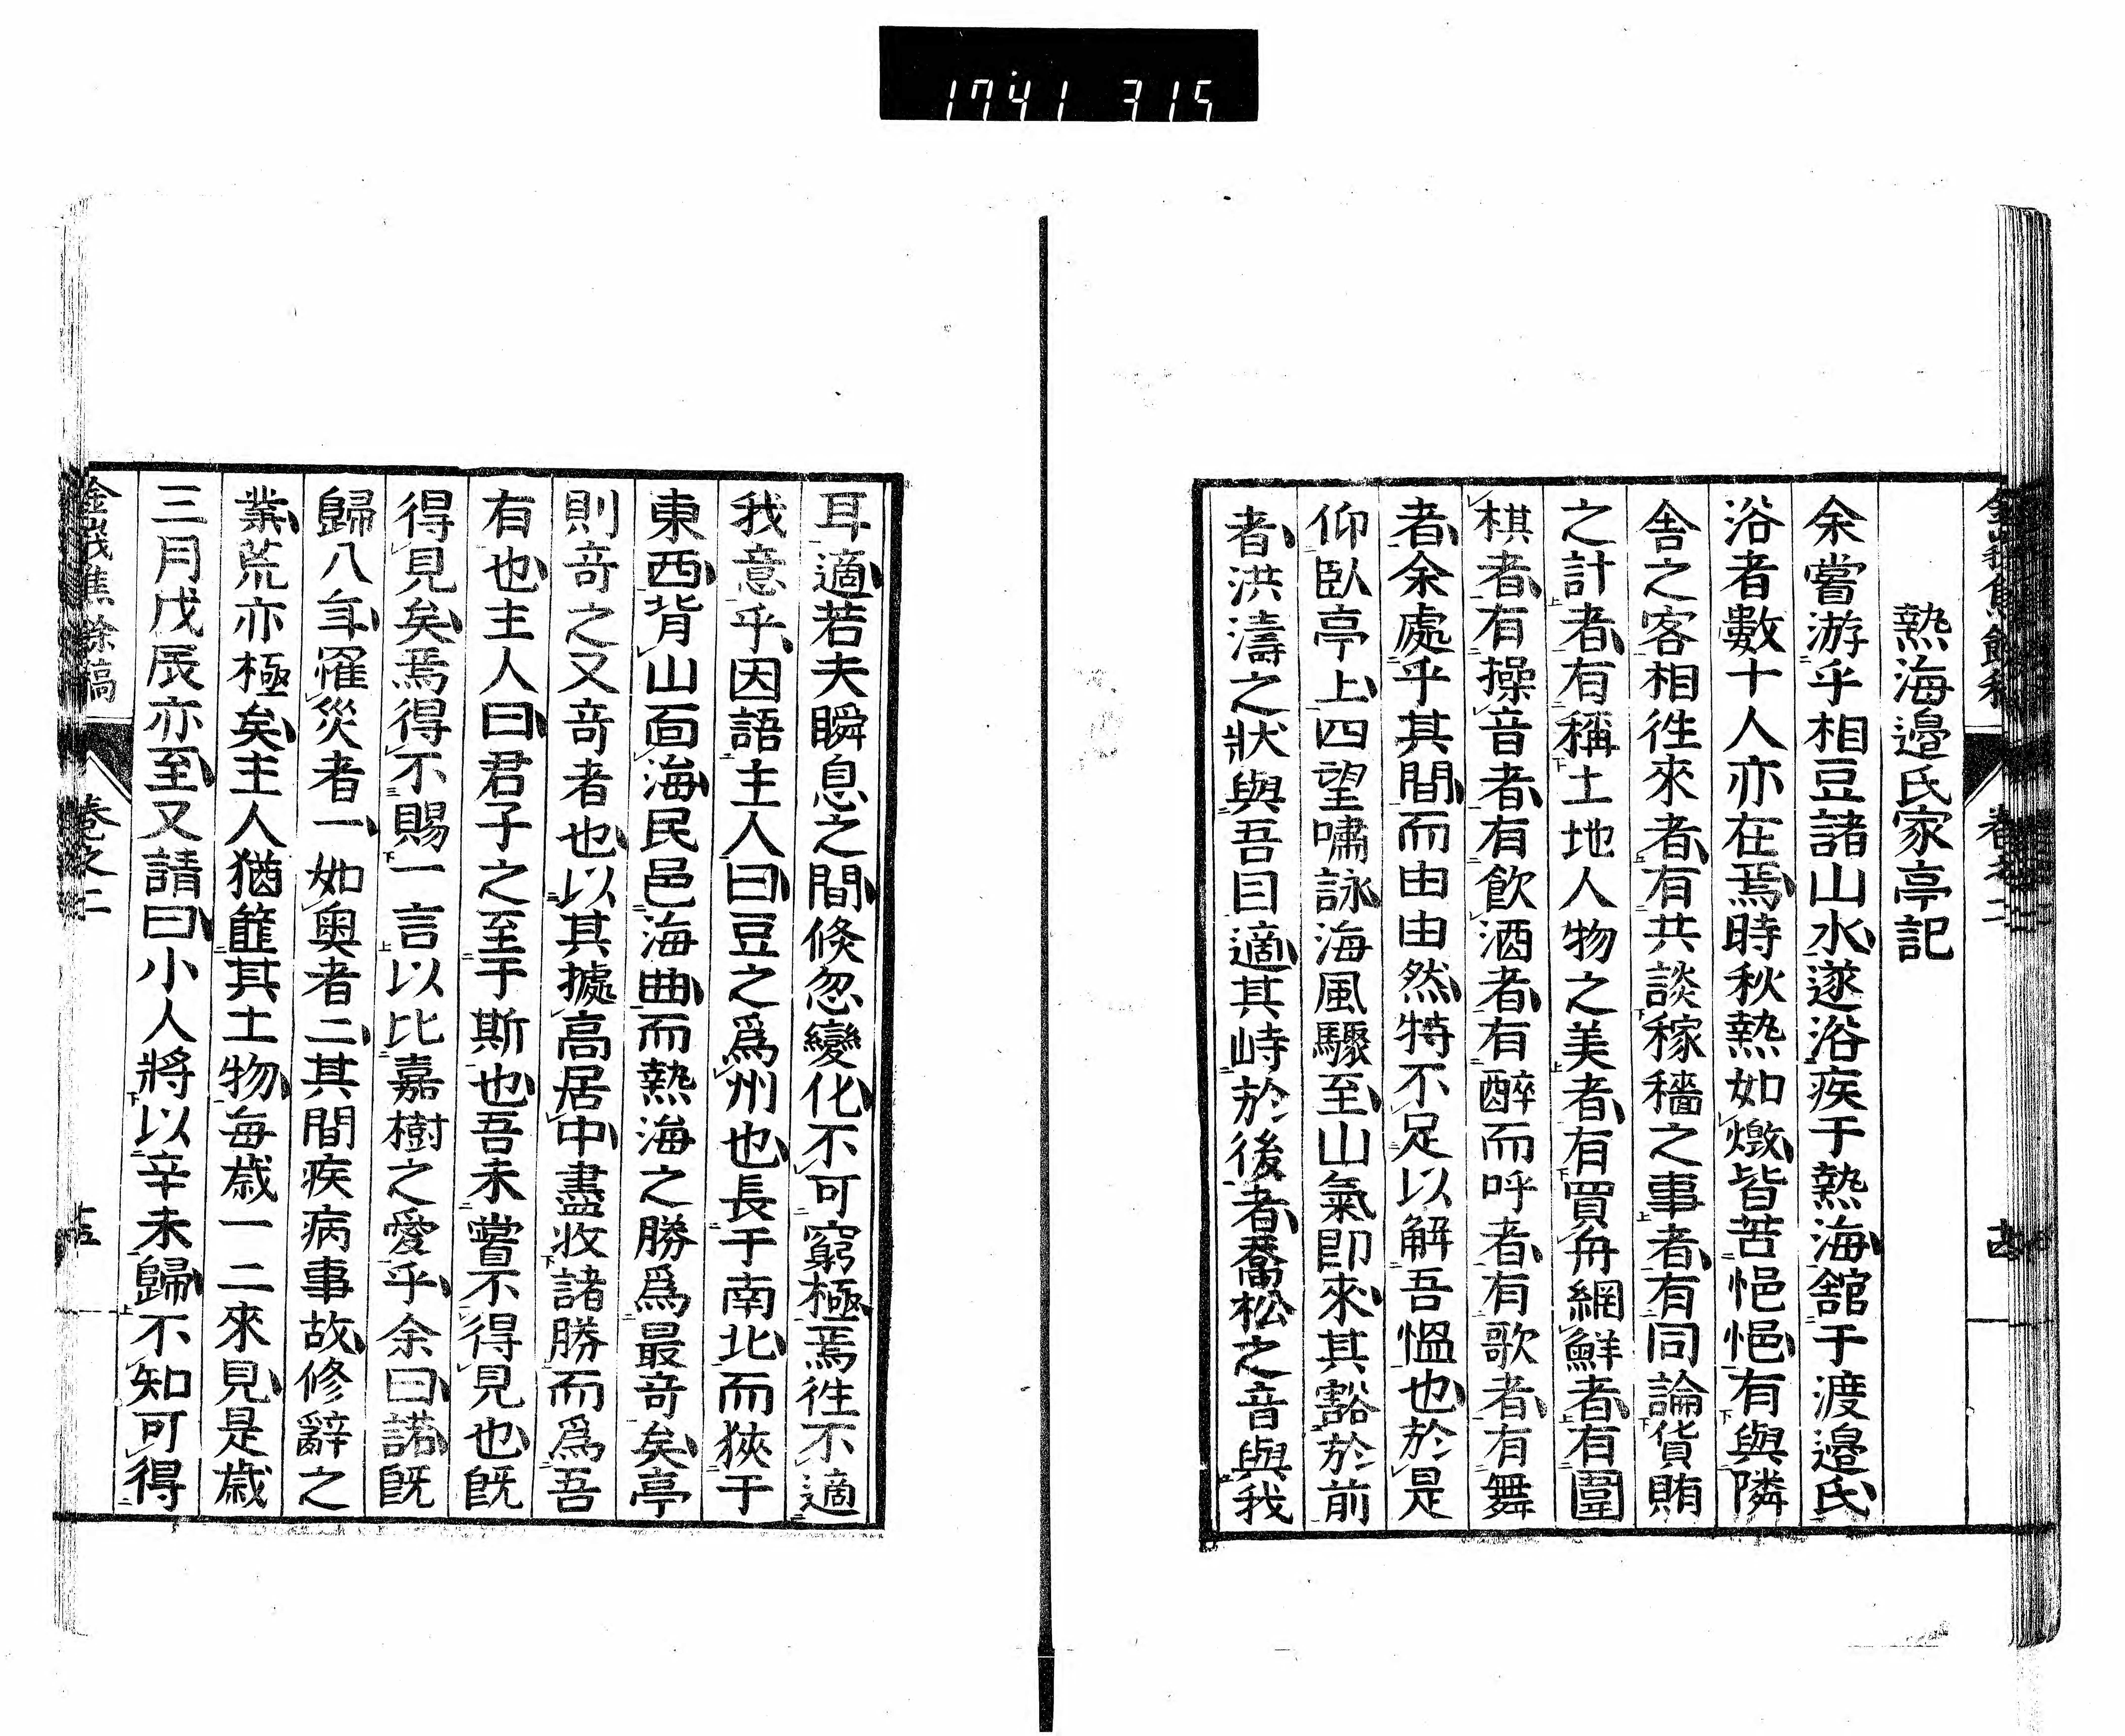 1741 315
熱海邉氏家亭記
余嘗游乎相豆諸山水遂浴疾于熱海舘于渡邉氏
浴者數十人亦在焉時秋熱如燬皆苦悒悒有與隣
舎之客相徃來者有共談稼穡之事者有同論貨賄
之計者有稱土地人物之美者有買舟網鮮者有圍
棋者有操音者有飲酒者有醉而呼者有歌者有舞
者余處乎其間而由由然特不足以解吾慍也於是
仰臥亭上四望嘯詠海風驟至山氣即來其豁於前
者洪濤之狀與吾目適其峙於後者喬松之音與我
耳適若夫瞬息之間倐忽變化不可窮極焉徃不適
我意乎因語主人曰豆之爲州也長于南北而狹于
東西背山面海民邑海曲而熱海之勝爲最竒矣亭
則竒之又竒者也以其據高居中盡收諸勝而爲吾
有也主人曰君子之至于斯也吾未嘗不得見也既
得見矣焉得不賜一言以比嘉樹之愛乎余曰諾既
歸八年罹災者一如奥者二其間疾病事故修辭之
業荒亦極矣主人猶篚其土物毎歳一二來見是歳
三月戊辰亦至又請曰小人將以辛未歸不知可得
金峩焦餘稿 卷之二